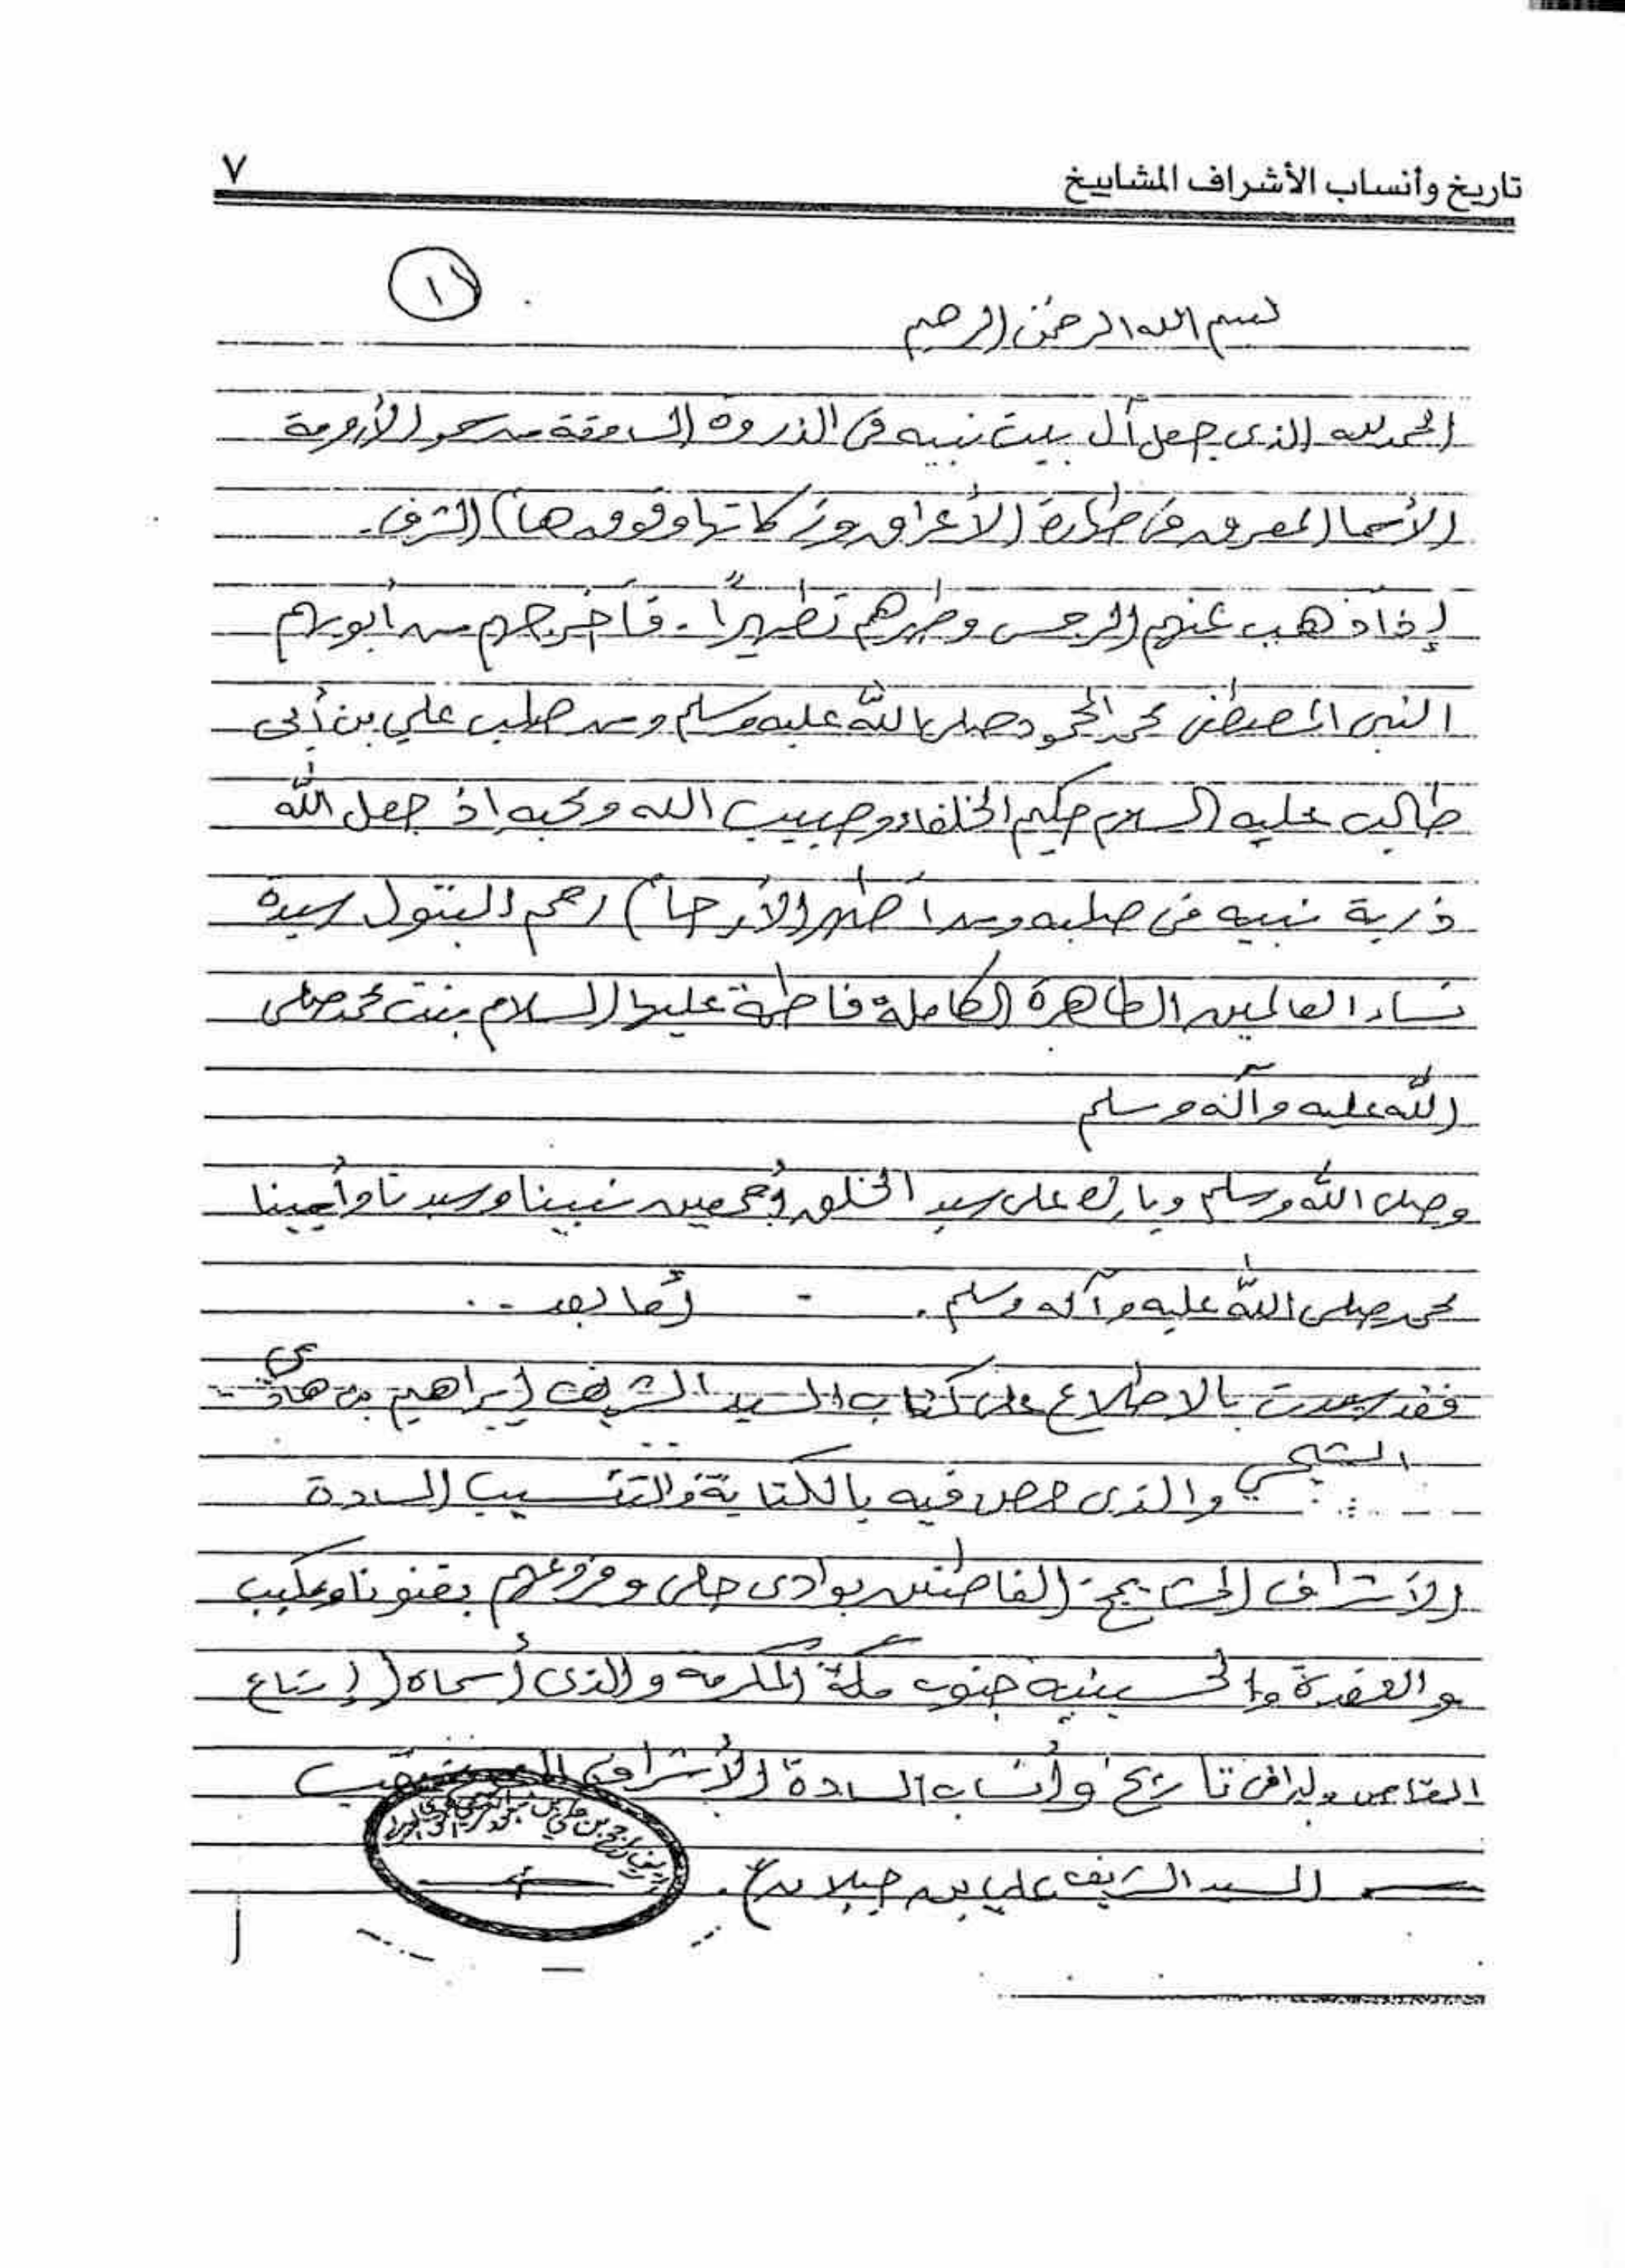 تاريخ وأنساب الأشراف المشاييخ
٧
١
بسم الله الرحمن الرحيم
الحمد لله الذي جعل آل بيت نبيه في الذروة السامقة من سمو الأرومة
الأسما المعرق في طهارة الأعراق وزكاتها وفوقها الشرف.
إذ أذهب عنهم الرجس وطهرهم تطهيراً. فأخرجهم من أبويهم
النبي المصطفى محمد المحمود صلى الله عليه وسلم ومن صلب علي بن أبي
طالب عليه السلام حكيم الخلفاء وحبيب الله ومحبه إذ جعل الله
ذرية نبيه في صلبه ومن أطهر الأرحام رحم البتول سيدة
نساء العالمين الطاهرة الكاملة فاطمة عليها السلام بنت محمد صلى
الله عليه وآله وسلم
وصلى الله وسلم وبارك على سيد الخلق أجمعين نبينا وسيدنا وأمينا
محمد صلى الله عليه وآله وسلم. - أما بعد ..
فقد سعدت بالاطلاع على كتاب السيد الشريف إبراهيم بن هادي
الشيخي والذي خص فيه بالكتابة والتنسيب السادة
الأشراف المشاييخ القاطنين بوادي حلي وفروعهم بقنونا وعليب
والغفرة والحسينية جنوب مكة المكرمة والذي أسماه (إمتاع
القاصي والداني تاريخ وأنساب السادة الأشراف
السيد الشريف علي بن جبلان).